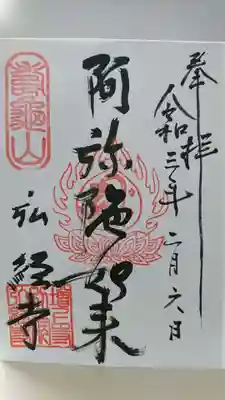 奉拝
令和三年 二月 六日
阿弥陀如来
寿亀山
弘経寺